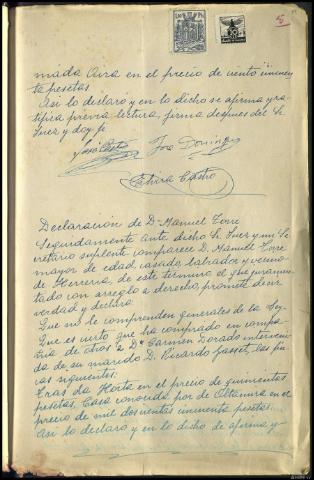 5
mada Aira en el precio de ciento cincuen
ta pesetas
Asi lo declaro y en lo dicho se afirma y ra
tifica previa lectura, firma despues del Sr.
Juez y doy fe
José Castro José Dominguez
Elvira Castro
Declaración de Dn Manuel Torre
Seguidamente ante dicho Sr Juez y mi Se
cretario suplente comparece D. Manuel Torre
mayor de edad, casado, labrador y vecino
de Herreria, de este termino el que juramen
tado con arreglo a derecho, prometi decir
verdad y declara
Que no le comprenden generales de la Ley
Que es cierto que ha comprado en compa
ñia de otros a Dª Carmen Dorado interveni
da de su marido D. Ricardo Gasset, las fin
cas siguientes:
Tras da Horta en el precio de quinientas
pesetas, Casa conocida por de Altamira en el
precio de mil doscientas cincuenta pesetas.
Asi lo declaro y en lo dicho se afirma y